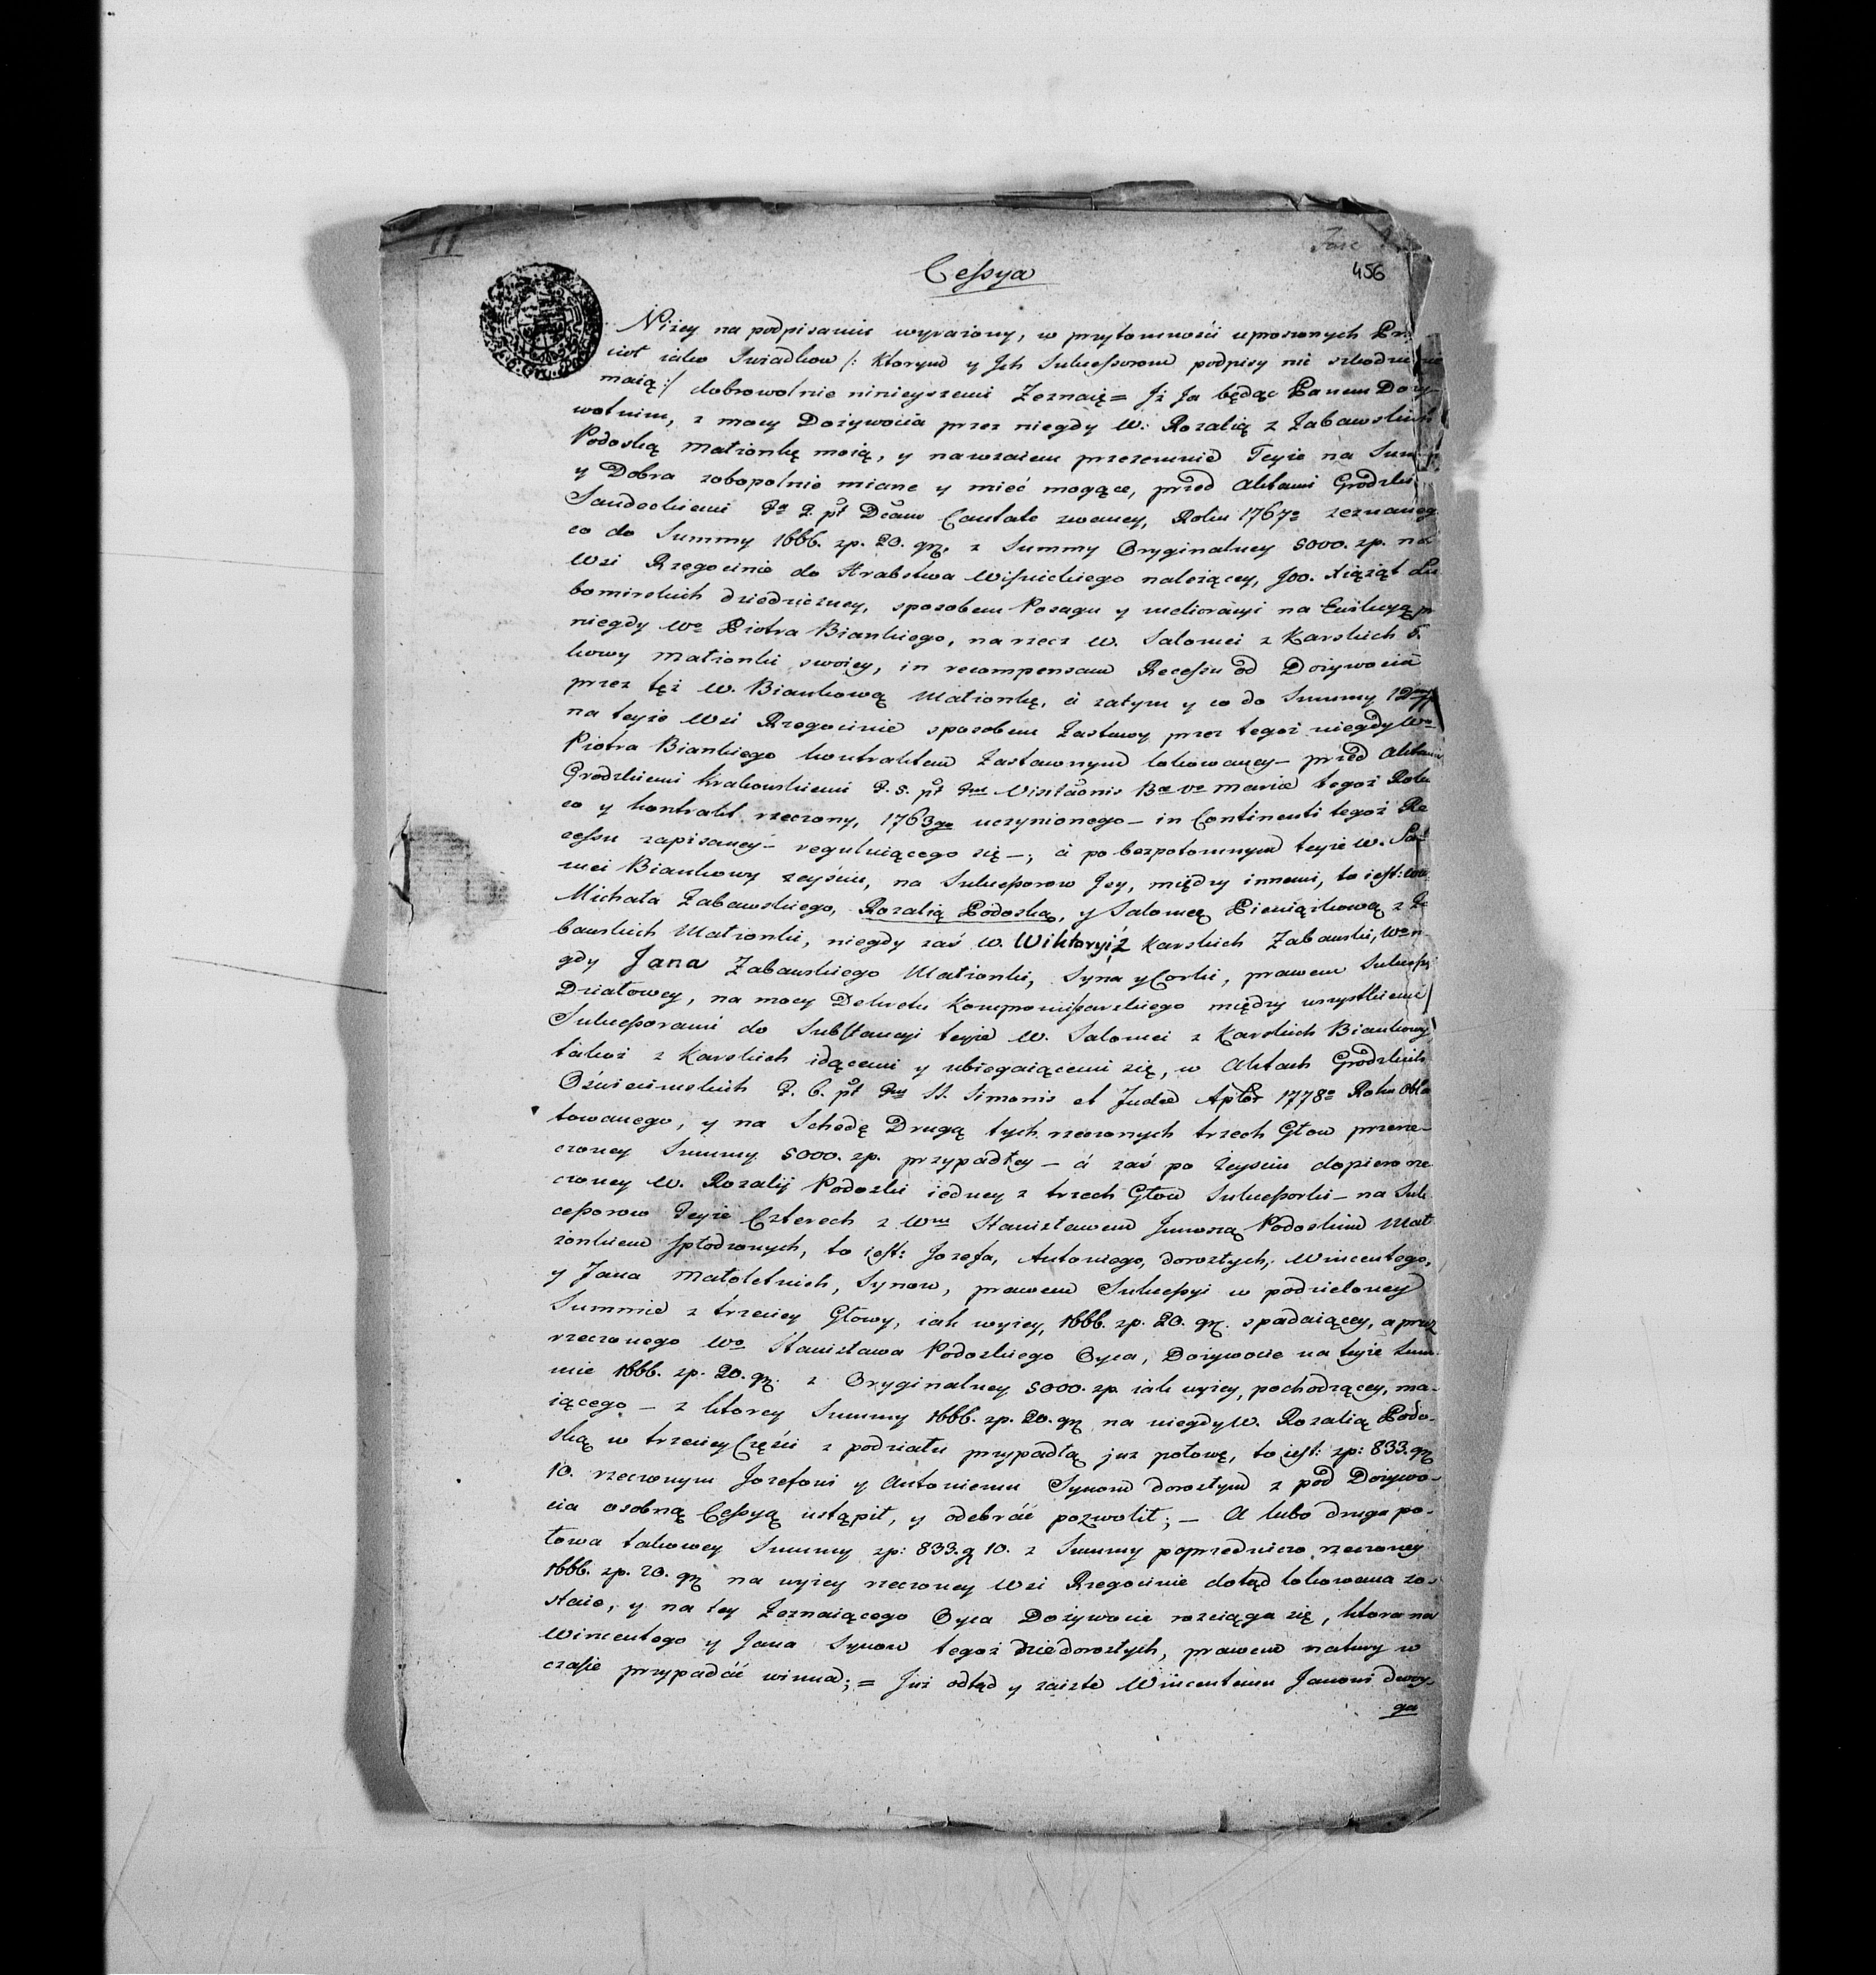 11
456
Cessya
Niżey na podpisaniu wyrażony, w przytomności uproszonych
ciół iako Swiadkow /: Ktorym y Jch Sukcessorom podpisy nie szkodzić
maią :/ dobrowolnie ninieyszemi Zeznaię = Jż Ja będąc Panem Doży-
wotnim, z mocy Dożywocia przez niegdy W. Rozalią z Zabawskich
Podoską Małżonkę moią, y nawzaiem przezemnie Teyże na
y Dobra zobopolnie miane y mieć mogące, przed Aktami Grodzki
Sandeckiemi pt Cantate zwaney, Roku 1767o zeznaneg
co do Summy 1666. zp. 20. gr. z Summy Oryginalney 5000. zp. na
Wsi Rzegocinie do Hrabstwa Wiśnickiego należącey, JOO. Xiążąt Lu
bomirskich dziedziczney, sposobem Posagu y melioracyi na Ewikcyą
niegdy Wo Piotra Biankiego, na rzecz W. Salomei z Karskich
kowy Małżonki swoiey, in recompensam Recessu od Dożywocia
przez też W. Biankową Małżonkę, á zatym y co do Summy
na teyże Wsi Rzegocinie sposobem Zastawy przez tegoż niegdy Wo
Piotra Biankiego kontraktem Zastawnym lokowaney – przed Aktami
Grodzkiemi Krakowskiemi pt Visitaonis Mariae tegoż Roku
co y kontrakt rzeczony, 1763go uczynionego – in Continenti tegoż Re
cessu zapisaney – reguluiącego się –; á po bezpotomnym teyże W. Sal
mei Biankowy zeyściu, na Sukcessorow Jey, między innemi, to iest:
Michała Zabawskiego, Rozalią Podoską, y Salomeę Pieniążkową z Za
bawskich Małżonki, niegdy zaś W. Wiktoryi z Karskich Zabawski,
gdy Jana Zabawskiego Małżonki, Syna y Corki, prawem
Działowey, na mocy Dekretu Kompromissarskiego między wszystkiemi
Sukcessorami do Substancyi teyże W. Salomei z Karskich Biankowy,
takoż z Karskich idącemi y ubiegaiącemi się, w Aktach Grodzkich
Oświecimskich pt SS. Simonis et Judae 1778o Roku Obla
towanego, y na Schedę Drugą tych rzeczonych trzech Głow przerze-
czoney Summy 5000. zp. przypadłey – á zaś po zeyściu dopiero rze
czoney W. Rozalij Podoski iedney z trzech Głow Sukcessorki – na Suk
cessorow Teyże Czterech z Wm Stanisławem Junoszą Podoskim Mał
żonkiem spłodzonych, to iest: Jozefa, Antoniego, dorosłych, Wincentego,
y Jana Małoletnich, Synow, prawem Sukcessyi w podzieloney
Summie z trzeciey Głowy, iak wyżey, 1666. zp. 20. gr. spadaiącey, a przez
rzeczonego Wo Stanisława Podoskiego Oyca, Dożywocie na teyże Sum-
mie 1666. zp. 20. gr. z Oryginalney 5000. zp. iak wyżey, pochodzącey, ma-
iącego – z ktorey Summy 1666. zp. 20. gr na niegdy W. Rozalią Podo-
ską w trzeciey Części z podziału przypadłą już połowę, to iest: zp: 833. gr
10. rzeczonym Jozefowi y Antoniemu Synom dorosłym z pod Dożywo-
cia osobną Cessyą ustąpił, y odebráć pozwolił; – A lubo druga po-
łowa takowey Summy zp: 833. g 10. z Summy poprzedniczo rzeczoney
1666. zp. 20. gr na wyżey rzeczoney Wsi Rzegocinie dotąd lokowana zo-
staie, y na tey Zeznaiącego Oyca Dożywocie rozciąga się, ktora na
Wincentego y Jana Synow tegoż niedorosłych, prawem natury w
czasie przypadáć winna; = Już odtąd y zaiste Wincentemu Janowi dwoy-
ga